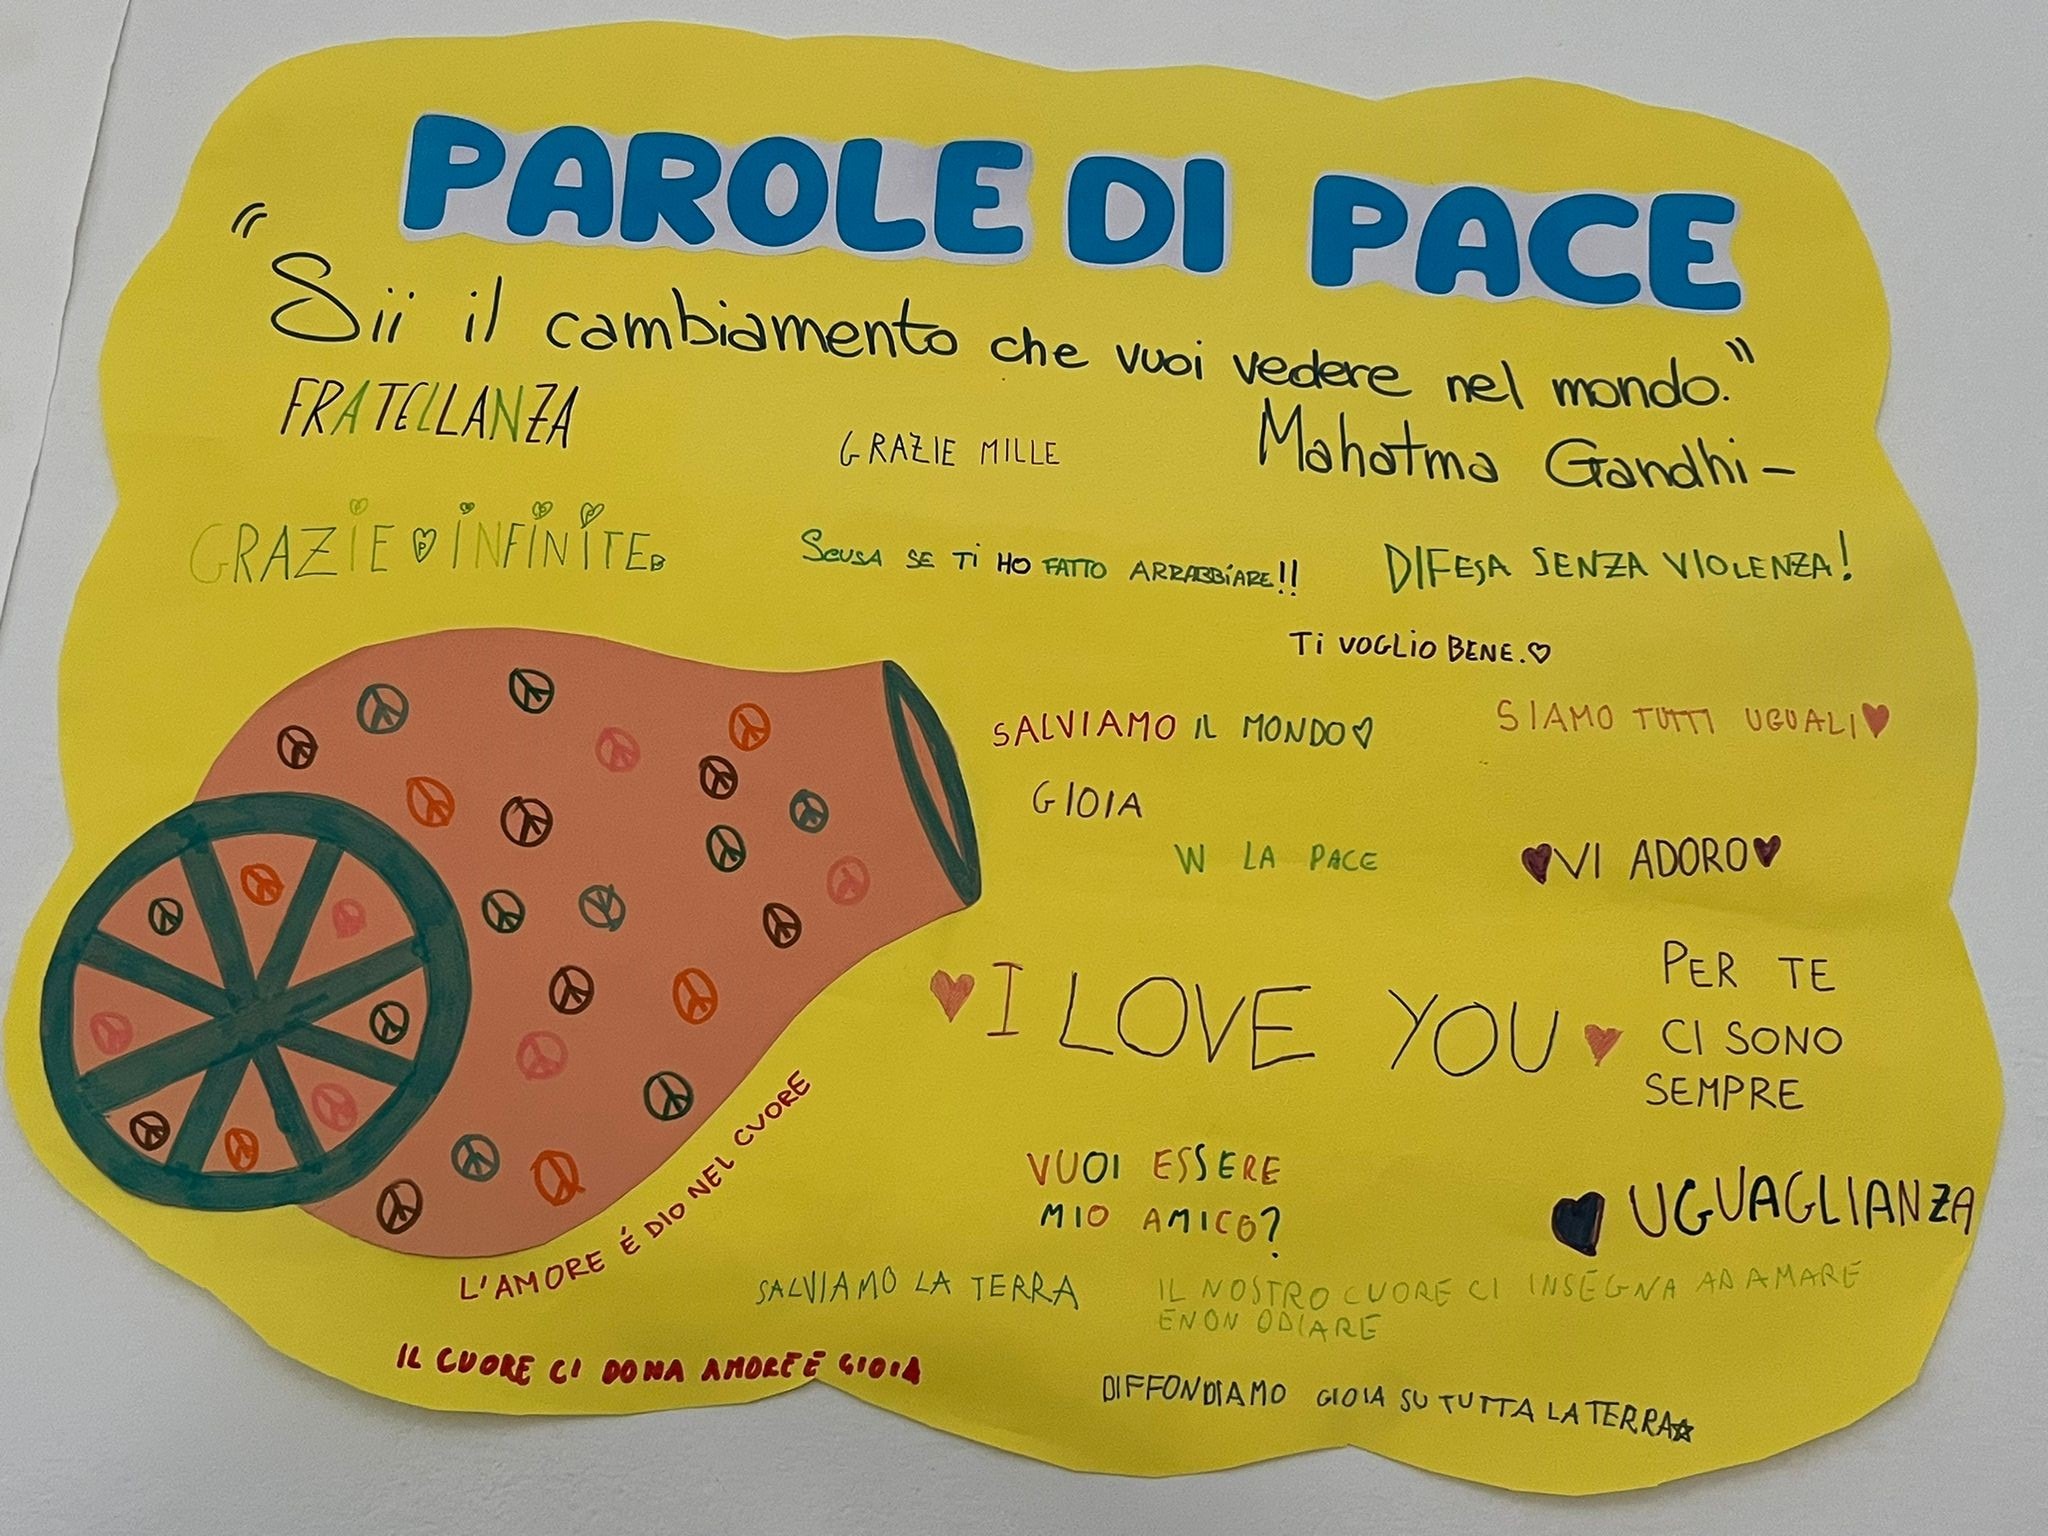 PAROLE DI PACE
"Sii il cambiamento che vuoi vedere nel mondo."
Mahatma Gandhi -
FRATELLANZA
GRAZIE MILLE
GRAZIE INFINITE
SCUSA SE TI HO FATTO ARRABBIARE!!
DIFESA SENZA VIOLENZA!
TI VOGLIO BENE.
SALVIAMO IL MONDO
SIAMO TUTTI UGUALI
GIOIA
W LA PACE
VI ADORO
I LOVE YOU
PER TE
CI SONO
SEMPRE
VUOI ESSERE
MIO AMICO?
UGUAGLIANZA
L'AMORE É DIO NEL CUORE
SALVIAMO LA TERRA
IL NOSTRO CUORE CI INSEGNA AD AMARE
E NON ODIARE
IL CUORE CI DONA AMORE E GIOIA
DIFFONDIAMO GIOIA SU TUTTA LA TERRA